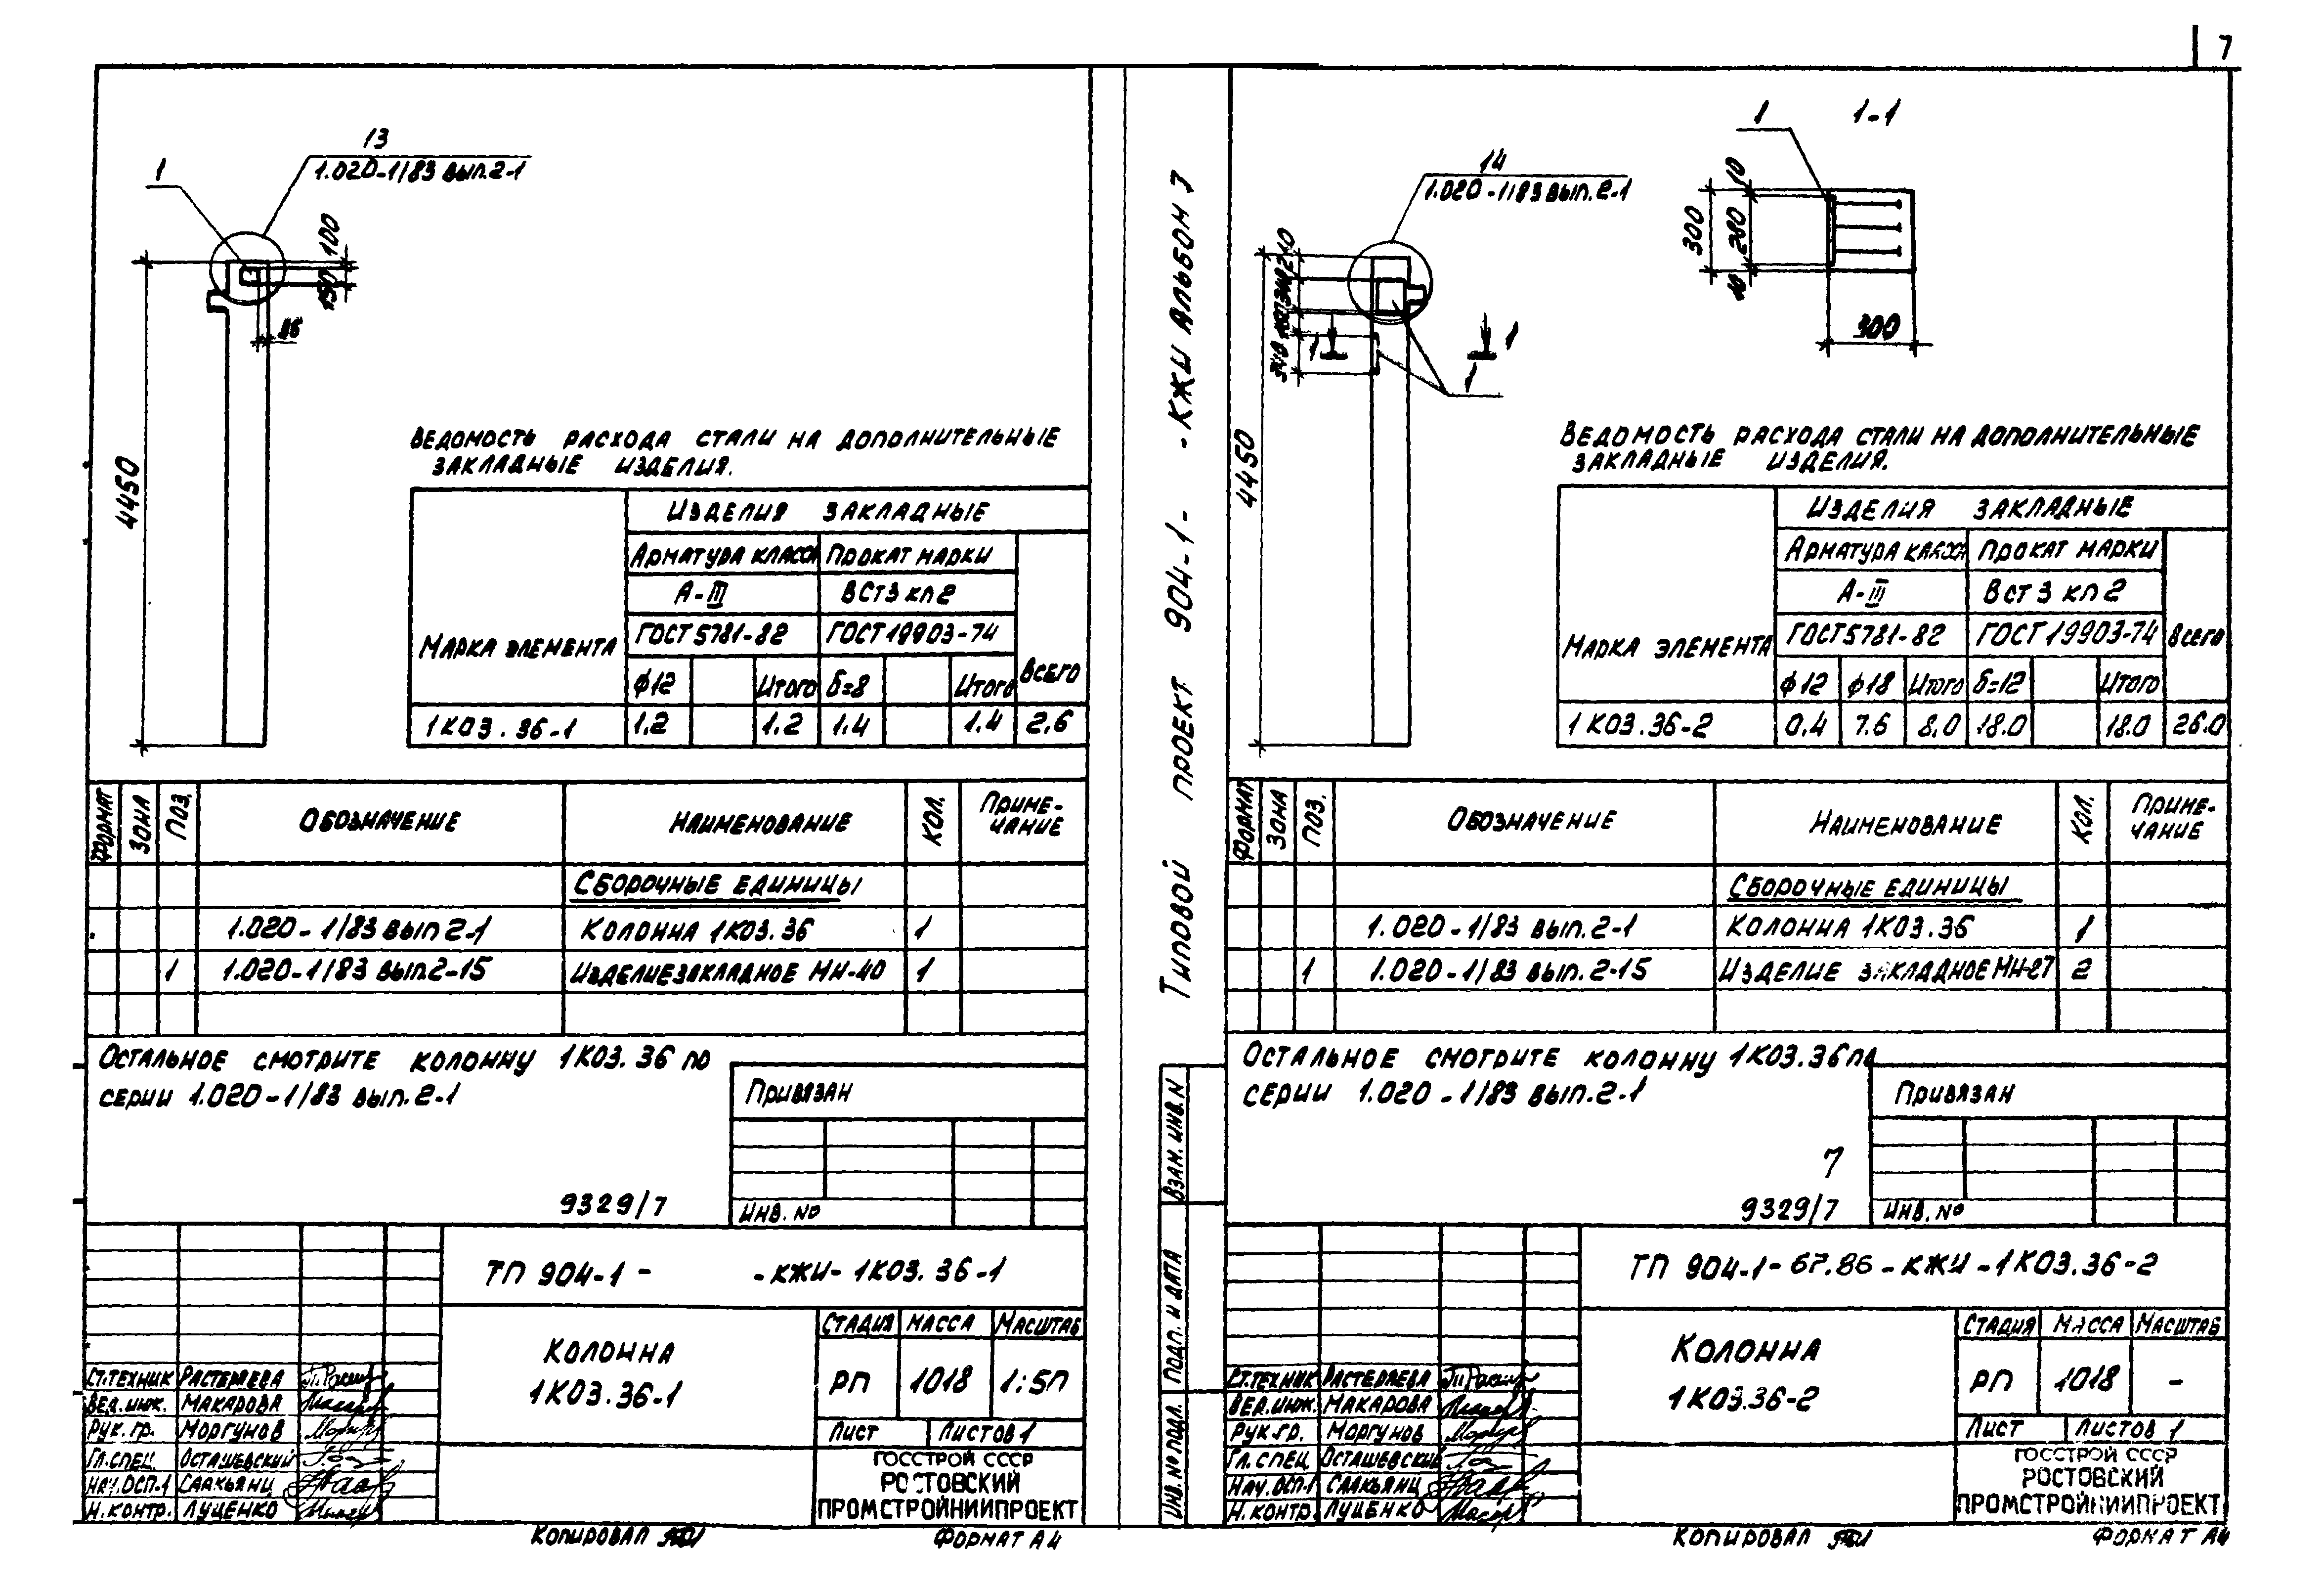 7
13
1.020-1/83 вып.2-1
1
100
150
4450
Ведомость расхода стали на дополнительные
закладные изделия.
Марка элемента
Изделия закладные
Арматура класса
Прокат марки
А-III
ВСт3кп2
ГОСТ5781-82
ГОСТ19903-74
Всего
ф12
Итого
δ=8
Итого
1К03.36-1
1.2
1.2
1.4
1.4
2,6
Формат
Зона
Поз.
Обозначение
Наименование
Кол.
Приме-
чание
Сборочные единицы
1.020-1/83 вып 2-1
Колонна 1К03.36
1
1
1.020-1/83 вып.2-15
Изделие закладное МН-40
1
Остальное смотрите колонну 1К03.36 по
серии 1.020-1/83 вып.2-1
Привязан
9329/7
Инв. №
ТП 904-1-
-КЖИ-1К03.36-1
Колонна
1К03.36-1
Стадия
Масса
Масштаб
РП
1018
1:50
Лист
Листов 1
Ст.техник Растеряева
Вед.инж. Макарова
Рук.гр. Моргунов
Гл.спец. Осташевский
Нач.ОСП-1 Саакьянц
Н.контр. Луценко
ГОССТРОЙ СССР
РОСТОВСКИЙ
ПРОМСТРОЙНИИПРОЕКТ
Копировал
Формат А4
Типовой проект 904-1- -КЖИ Альбом 7
Взам. инв. N
Подп. и дата
Инв. № подл.
14
1.020-1/83 вып.2-1
4450
1
1
1
1
1-1
10
300
280
10
300
Ведомость расхода стали на дополнительные
закладные изделия.
Марка элемента
Изделия закладные
Арматура класса
Прокат марки
А-III
ВСт3кп2
ГОСТ5781-82
ГОСТ19903-74
Всего
ф12
ф18
Итого
δ=12
Итого
1К03.36-2
0.4
7.6
8.0
18.0
18.0
26.0
Формат
Зона
Поз.
Обозначение
Наименование
Кол.
Приме-
чание
Сборочные единицы
1.020-1/83 вып.2-1
Колонна 1К03.36
1
1
1.020-1/83 вып.2-15
Изделие закладное МН-27
2
Остальное смотрите колонну 1К03.36 по
серии 1.020-1/83 вып.2-1
Привязан
7
9329/7
Инв. №
ТП 904-1-67.86-КЖИ-1К03.36-2
Колонна
1К03.36-2
Стадия
Масса
Масштаб
РП
1018
-
Лист
Листов 1
Ст.техник Растеряева
Вед.инж. Макарова
Рук.гр. Моргунов
Гл.спец. Осташевский
Нач.ОСП-1 Саакьянц
Н.контр. Луценко
ГОССТРОЙ СССР
РОСТОВСКИЙ
ПРОМСТРОЙНИИПРОЕКТ
Копировал
Формат А4